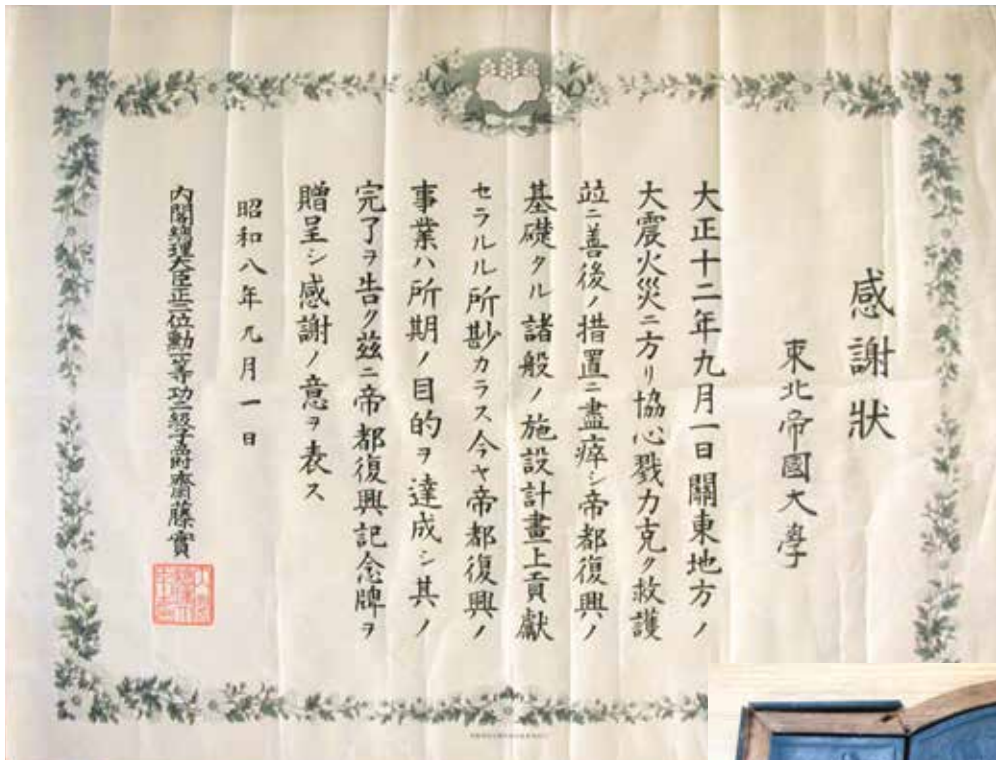 感謝狀
東北帝國大學
大正十二年九月一日關東地方ノ
大震火災ニ方リ協心戮力克ク救護
竝ニ善後ノ措置ニ盡瘁シ帝都復興ノ
基礎タル諸般ノ施設計畫上貢獻
セラルル所尠カラス今ヤ帝都復興ノ
事業ハ所期ノ目的ヲ達成シ其ノ
完了ヲ告ク玆ニ帝都復興記念牌ヲ
贈呈シ感謝ノ意ヲ表ス
昭和八年九月一日
内閣總理大臣正三位勳一等功二級子爵齋藤實